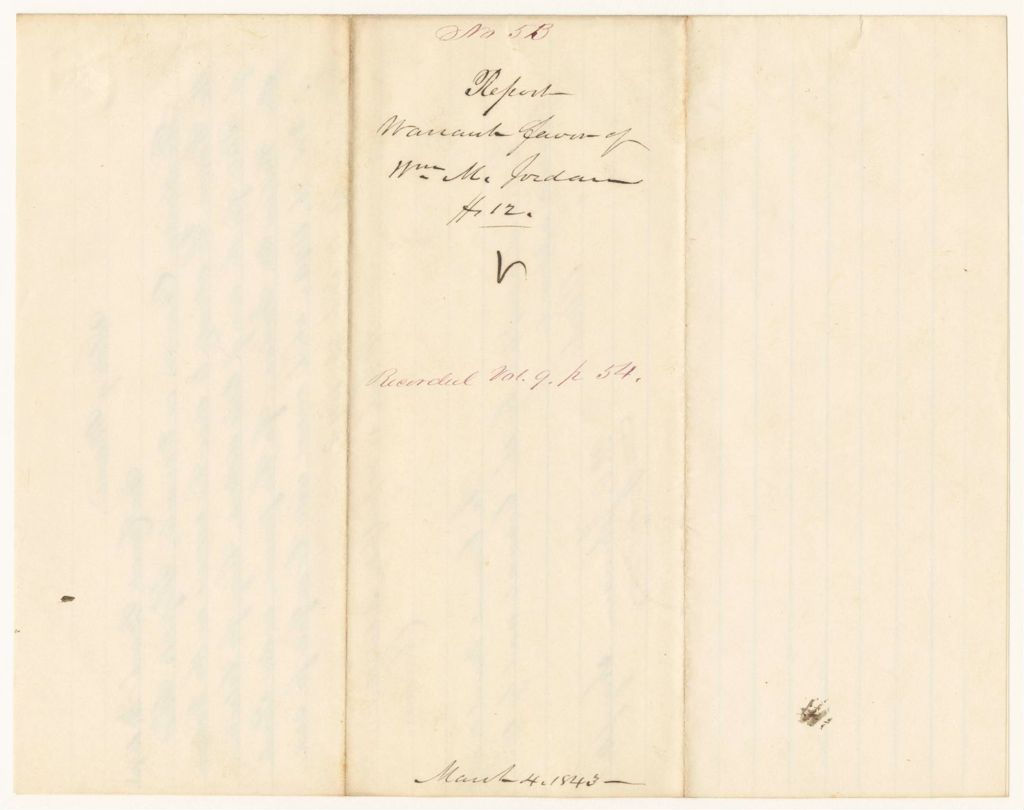 No 5B
Report
Warrant favor of
Wm. M. Jordan
12.
Recorded Vol. 9. p 54.
March 4. 1843